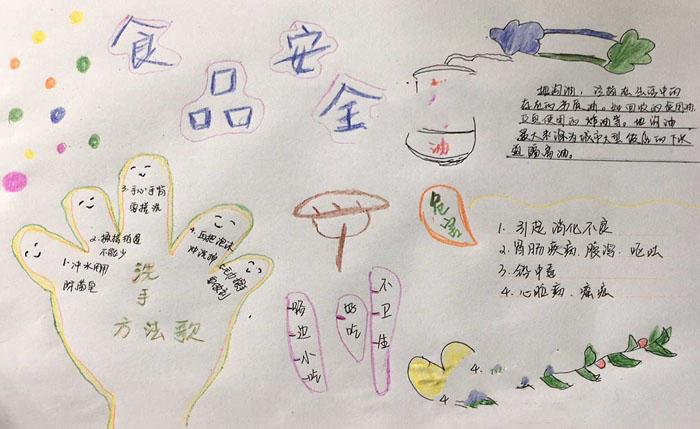 食品安全
地沟油,泛指在生活中的
存在的劣质油,如回收的食用油
反复使用的炸油等。地沟油
最大来源为城市大型饭店的下水
道隔离油。
油
危害
1.引起消化不良
2.胃肠疾病、腹泻、呕吐
3.铅中毒
4.心脏病、癌症
3.手心手背
要搓洗
不能少
1.冲水用
洗
手
方法歌
路边小吃
好吃
不卫生
4.
4.